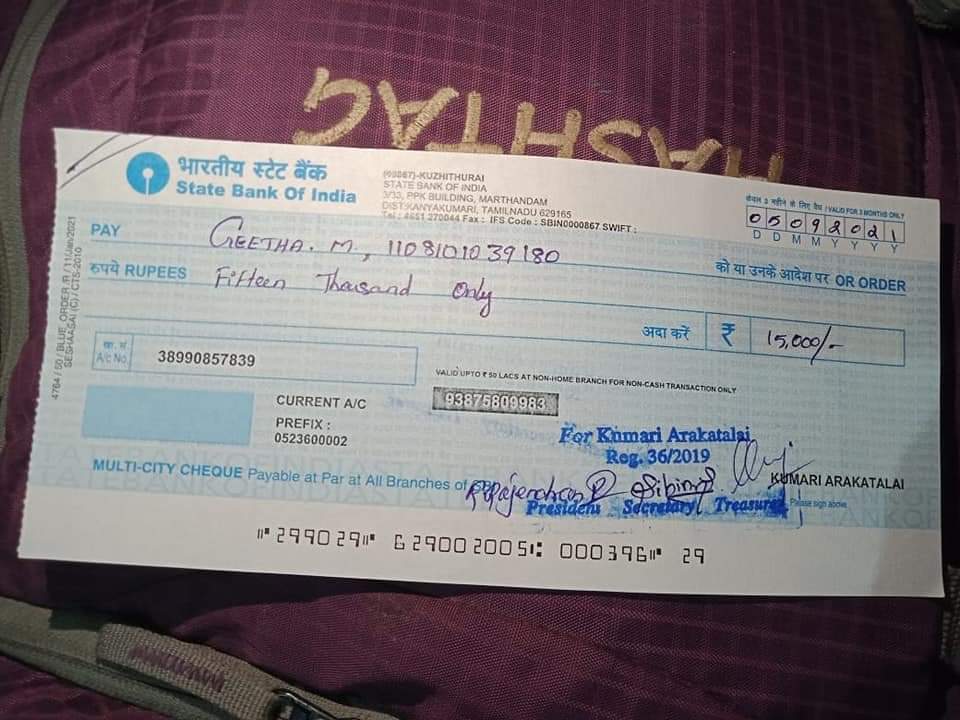 HASHTAG
भारतीय स्टेट बैंक
State Bank Of India
(00867)-KUZHITHURAI
STATE BANK OF INDIA
3/33, PPK BUILDING, MARTHANDAM
DIST:KANYAKUMARI, TAMILNADU 629165
Tel : 4651 270044 Fax : IFS Code : SBIN0000867 SWIFT :
केवल 3 महीने के लिए वैध / VALID FOR 3 MONTHS ONLY
05092021
D D M M Y Y Y Y
PAY GEETHA. M, 1108101039180
को या उनके आदेश पर OR ORDER
रुपये RUPEES Fifteen Thousand Only
अदा करें ₹ 15,000/-
खा. सं.
A/c No. 38990857839
VALID UPTO ₹ 50 LACS AT NON-HOME BRANCH FOR NON-CASH TRANSACTION ONLY
CURRENT A/C 93875809983
PREFIX :
0523600002
For Kumari Arakatalai
Reg. 36/2019
KUMARI ARAKATALAI
MULTI-CITY CHEQUE Payable at Par at All Branches of SBI
President Secretary Treasurer
Please sign above
⑈299029⑈ 629002005⑆ 000396⑈ 29